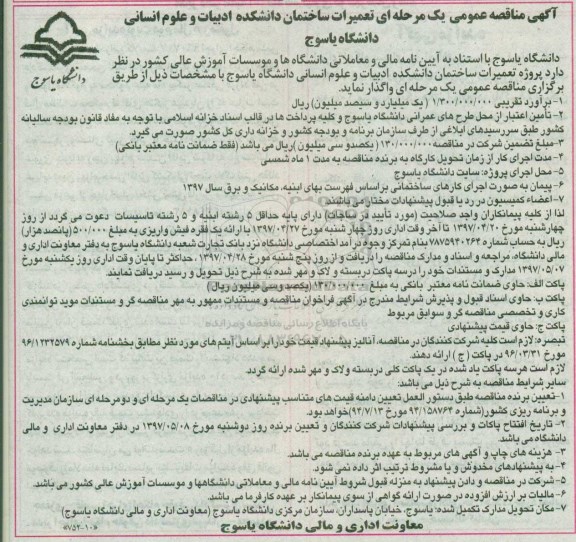 آگهی مناقصه عمومی یک مرحله ای تعمیرات ساختمان دانشکده ادبیات و علوم انسانی
دانشگاه یاسوج
دانشگاه یاسوج
دانشگاه یاسوج با استناد به آیین نامه مالی و معاملاتی دانشگاه ها و موسسات آموزش عالی کشور در نظر
دارد پروژه تعمیرات ساختمان دانشکده ادبیات و علوم انسانی دانشگاه یاسوج با مشخصات ذیل از طریق
برگزاری مناقصه عمومی یک مرحله ای واگذار نماید.
۱- برآورد تقریبی ۱/۳۰۰/۰۰۰/۰۰۰ (یک میلیارد و سیصد میلیون) ریال
۲- تأمین اعتبار از محل طرح های عمرانی دانشگاه یاسوج و کلیه پرداخت ها در قالب اسناد خزانه اسلامی با توجه به مفاد قانون بودجه سالیانه
کشور طبق سررسیدهای ابلاغی از طرف سازمان برنامه و بودجه کشور و خزانه داری کل کشور صورت می گیرد.
۳- مبلغ تضمین شرکت در مناقصه ۱۳۰/۰۰۰/۰۰۰ (یکصدو سی میلیون) ریال می باشد (فقط ضمانت نامه معتبر بانکی)
۴- مدت اجرای کار از زمان تحویل کارگاه به برنده مناقصه به مدت ۱ ماه شمسی
۵- محل اجرای پروژه: سایت دانشگاه یاسوج
۶- پیمان به صورت اجرای کارهای ساختمانی براساس فهرست بهای ابنیه، مکانیک و برق سال ۱۳۹۷
۷- اعضاء کمیسیون در رد یا قبول پیشنهادات مختار می باشند
لذا از کلیه پیمانکاران واجد صلاحیت (مورد تأیید در ساجات) دارای پایه حداقل ۵ رشته ابنیه و ۵ رشته تاسیسات دعوت می گردد از روز
چهارشنبه مورخ ۱۳۹۷/۰۴/۲۰ تا آخر وقت اداری روز چهار شنبه مورخ ۱۳۹۷/۰۴/۲۷ با ارائه یک فقره فیش واریزی به مبلغ ۵۰۰/۰۰۰ (پانصد هزار)
ریال به حساب شماره ۷۸۷۵۹۴۰۲۶۴ بنام تمرکز وجوه درآمد اختصاصی دانشگاه نزد بانک تجارت شعبه دانشگاه یاسوج به دفتر معاونت اداری و
مالی دانشگاه، مراجعه و اسناد و مدارک مناقصه را دریافت و از روز پنج شنبه مورخ ۱۳۹۷/۰۴/۲۸، حداکثر تا پایان وقت اداری روز یکشنبه مورخ
۱۳۹۷/۰۵/۰۷ مدارک و مستندات خود را درسه پاکت دربسته و لاک و مهر شده به شرح ذیل تحویل و رسید دریافت نمایند.
پاکت الف: حاوی ضمانت نامه معتبر بانکی به مبلغ ۱۳۰/۰۰۰/۰۰۰ (یکصد وسی میلیون ریال)
پاکت ب: حاوی اسناد قبول و پذیرش شرایط مندرج در آگهی فراخوان مناقصه و مستندات ممهور به مهر مناقصه گر و مستندات موید توانمندی
کاری و تخصصی مناقصه گر و سوابق مربوط
پاکت ج: حاوی قیمت پیشنهادی
تبصره: لازم است کلیه شرکت کنندگان در مناقصه، آنالیز پیشنهاد قیمت خود را بر اساس آیتم های مورد نظر مطابق بخشنامه شماره ۹۶/۱۲۳۲۵۷۹
مورخ ۹۶/۰۳/۳۱ در پاکت (ج) ارائه دهند.
لازم است هرسه پاکت یاد شده در یک پاکت کلی دربسته ولاک و مهر شده ارائه گردد.
سایر شرایط مناقصه به شرح ذیل می باشد:
۱- تعیین برنده مناقصه طبق دستور العمل تعیین دامنه قیمت های متناسب پیشنهادی در مناقصات یک مرحله ای و دو مرحله ای سازمان مدیریت
و برنامه ریزی کشور (شماره ۹۴/۱۵۸۷۶۴ مورخ ۹۴/۷/۱۳) خواهد بود.
۲- تاریخ افتتاح پاکات و بررسی پیشنهادات شرکت کنندگان و تعیین برنده روز دوشنبه مورخ ۱۳۹۷/۰۵/۰۸ در دفتر معاونت اداری و مالی
دانشگاه می باشد.
۳- هزینه های چاپ و آگهی های مربوط به عهده برنده مناقصه می باشد.
۴- به پیشنهادهای مخدوش و یا مشروط ترتیب اثر داده نمی شود.
۵- شرکت در مناقصه و دادن پیشنهاد به منزله قبول شروط آیین نامه مالی و معاملاتی دانشگاهها و موسسات آموزش عالی کشور می باشد.
۶- مالیات بر ارزش افزوده در صورت ارائه گواهی از سوی پیمانکار بر عهده کارفرما می باشد.
۷- مکان تحویل مدارک تکمیل شده: یاسوج، خیابان پاسداران، سازمان مرکزی دانشگاه یاسوج (معاونت اداری و مالی دانشگاه یاسوج)
معاونت اداری و مالی دانشگاه یاسوج
«۷۵۲-۱۰»